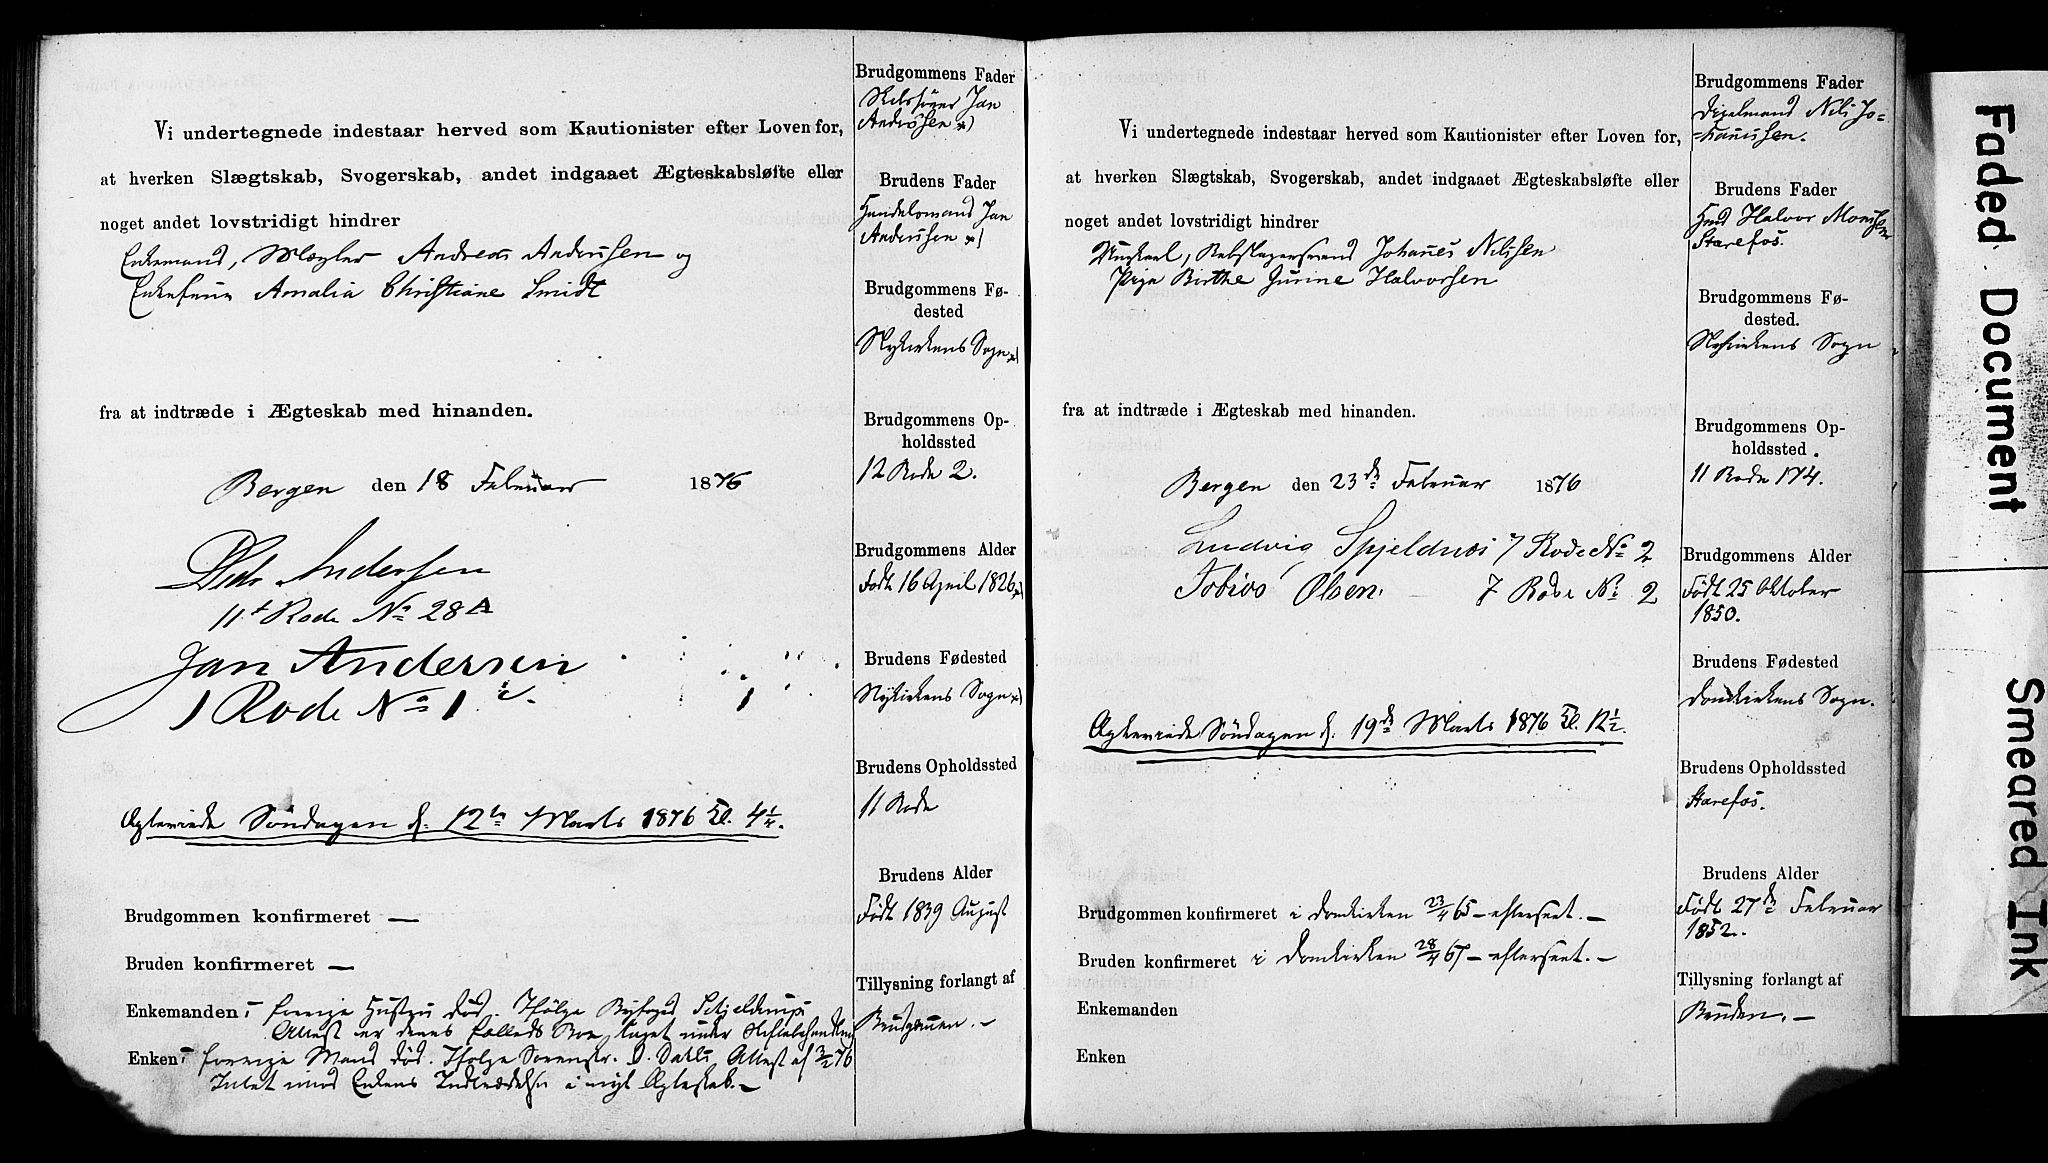 Vi undertegnede indestaar herved som Kautionister efter Loven for,
at hverken Slægtskab, Svogerskab, andet indgaaet Ægteskabsløfte eller
noget andet lovstridigt hindrer
Enkemand, Mægler Andreas Anderssen og
Enkefrue Amalia Christiane Smidt
fra at indtræde i Ægteskab med hinanden.
Bergen den 18 Februar 1876
Andersen
11t Rode No 28A
Jan Andersen
1 Rode No 1
Ægteviede Søndagen d. 12te Marts 1876 Kl. 4¼.
Brudgommen konfirmeret —
Bruden konfirmeret —
Enkemanden: forrige Hustru død. Ifølge Byfoged
Attest er deres Fælleds Boe taget under
Enken: forrige Mand død. Ifølge D. Dahls Attest af 3/2 76
Intet mod Enkens Indtrædelse i nyt Ægteskab.—
Brudgommens Fader
Jan
Anderssen x)
Brudens Fader
Handelsmand Jan
Anderssen x)
Brudgommens Fø-
dested
Nykirkens Sogn x)
Brudgommens Op-
holdssted
12 Rode 2.
Brudgommens Alder
Født 16 April 1826 x)
Brudens Fødested
Nykirkens Sogn x)
Brudens Opholdssted
11 Rode
Brudens Alder
Født 1839 August
Tillysning forlangt af
Brudgommen.—
Vi undertegnede indestaar herved som Kautionister efter Loven for,
at hverken Slægtskab, Svogerskab, andet indgaaet Ægteskabsløfte eller
noget andet lovstridigt hindrer
Ungkarl, Rebslagersvend Johannes Nilssen
Pige Birthe Gurine Halvorsen
fra at indtræde i Ægteskab med hinanden.
Bergen den 23de Februar 1876
Ludvig Spjeldnæs 7 Rode No 2
Tobias Olsen 7 Rode No 2
Ægteviede Søndagen d. 19de Marts 1876 Kl. 12½.
Brudgommen konfirmeret i Domkirken 23/4 65 – efterseet.—
Bruden konfirmeret i Domkirken 28/4 67 – efterseet.—
Enkemanden
Enken
Brudgommens Fader
Nils Jo-
-hannssen.
Brudens Fader
Hmd Halvor Monssen
Starefos.
Brudgommens Fø-
dested.
Nykirkens Sogn
Brudgommens Op-
holdssted.
11 Rode 174.
Brudgommens Alder
Født 25 Oktober
1850.
Brudens Fødested
Domkirkens Sogn.
Brudens Opholdssted
Starefos.
Brudens Alder
Født 27de Februar
1852.
Tillysning forlangt af
Bruden.—
Faded Document
Smeared Ink